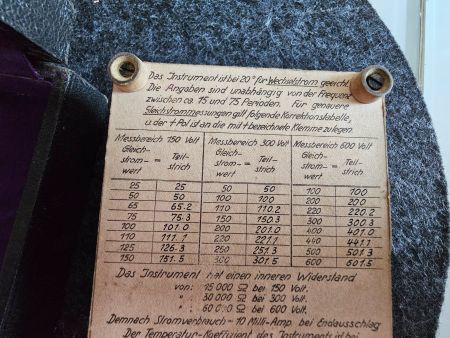 Das Instrument ist bei 20° für Wechselstrom geeicht.
Die Angaben sind unabhängig von der Frequenz
zwischen ca. 15 und 75 Perioden. Für genauere
Gleichstrommessungen gilt folgende Korrektionstabelle,
u. der + Pol ist an die mit + bezeichnete Klemme zu legen.
Messbereich 150 Volt Messbereich 300 Volt Messbereich 600 Volt
Gleich- Teil- Gleich- Teil- Gleich- Teil-
strom- = strich strom- = strich strom- = strich
wert wert wert
25 25 50 50 100 100
50 50 100 100 200 200
65 65.2 110 110.2 220 220.2
75 75.3 150 150.3 300 300.3
100 101.0 200 201.0 400 401.0
110 111.1 220 221.1 440 441.1
125 126.3 250 251.3 500 501.3
150 151.5 300 301.5 600 601.5
Das Instrument hat einen inneren Widerstand
von: 15 000 Ω bei 150 Volt.
" 30 000 Ω bei 300 Volt.
" 60 000 Ω bei 600 Volt.
Demnach Stromverbrauch = 10 Milli-Amp. bei Endausschlag
Der Temperatur-Koeffizient des Instruments ist bei